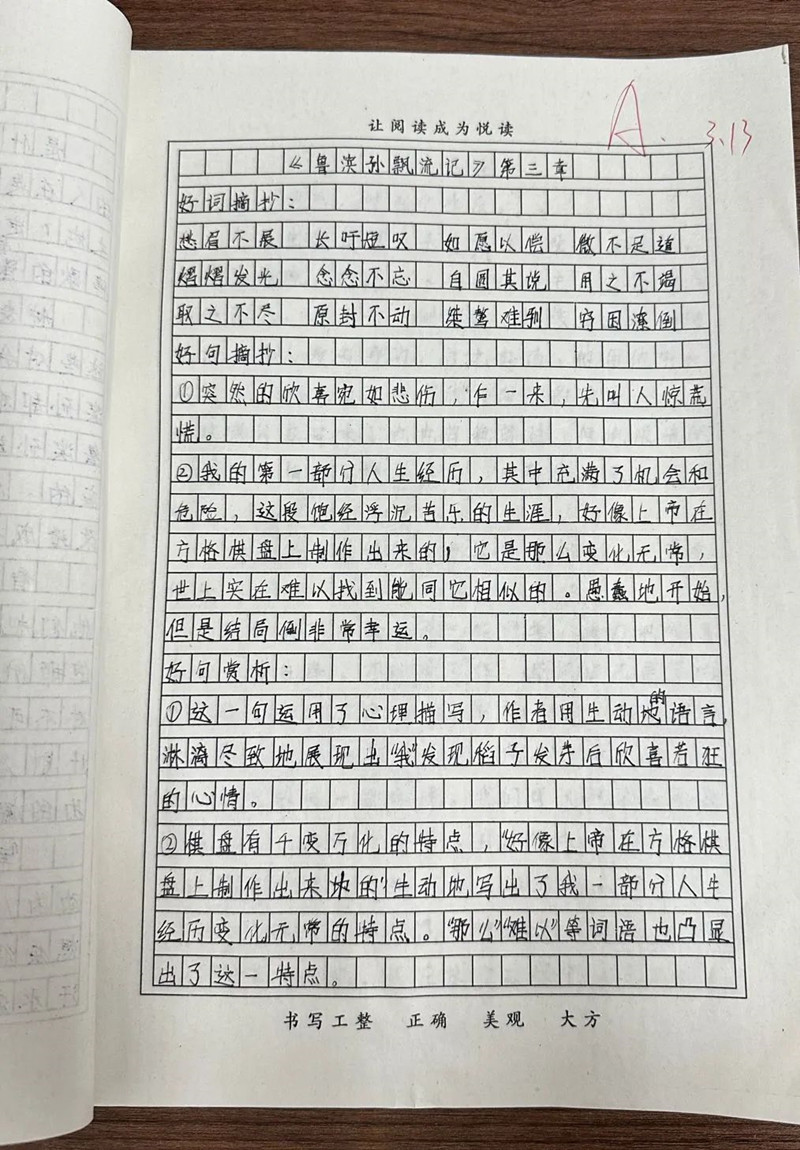 让阅读成为悦读
A. 3.13
《鲁滨孙飘流记》第三章
好词摘抄：
愁眉不展 长吁短叹 如愿以偿 微不足道
熠熠发光 念念不忘 自圆其说 用之不竭
取之不尽 原封不动 桀骜难驯 穷困潦倒
好句摘抄：
①突然的欣喜宛如悲伤，乍一来，先叫人惊荒
慌。
②我的第一部分人生经历，其中充满了机会和
危险，这段饱经浮沉苦乐的生涯，好像上帝在
方格棋盘上制作出来的；它是那么变化无常，
世上实在难以找到能同它相似的。愚蠢地开始，
但是结局倒非常幸运。
好句赏析：
①这一句运用了心理描写，作者用生动地的语言，
淋漓尽致地展现出“我”发现稻子发芽后欣喜若狂
的心情。
②棋盘有千变万化的特点，“好像上帝在方格棋
盘上制作出来地的”生动地写出了我一部分人生
经历变化无常的特点。“那么”“难以”等词语也凸显
出了这一特点。
书写工整 正确 美观 大方